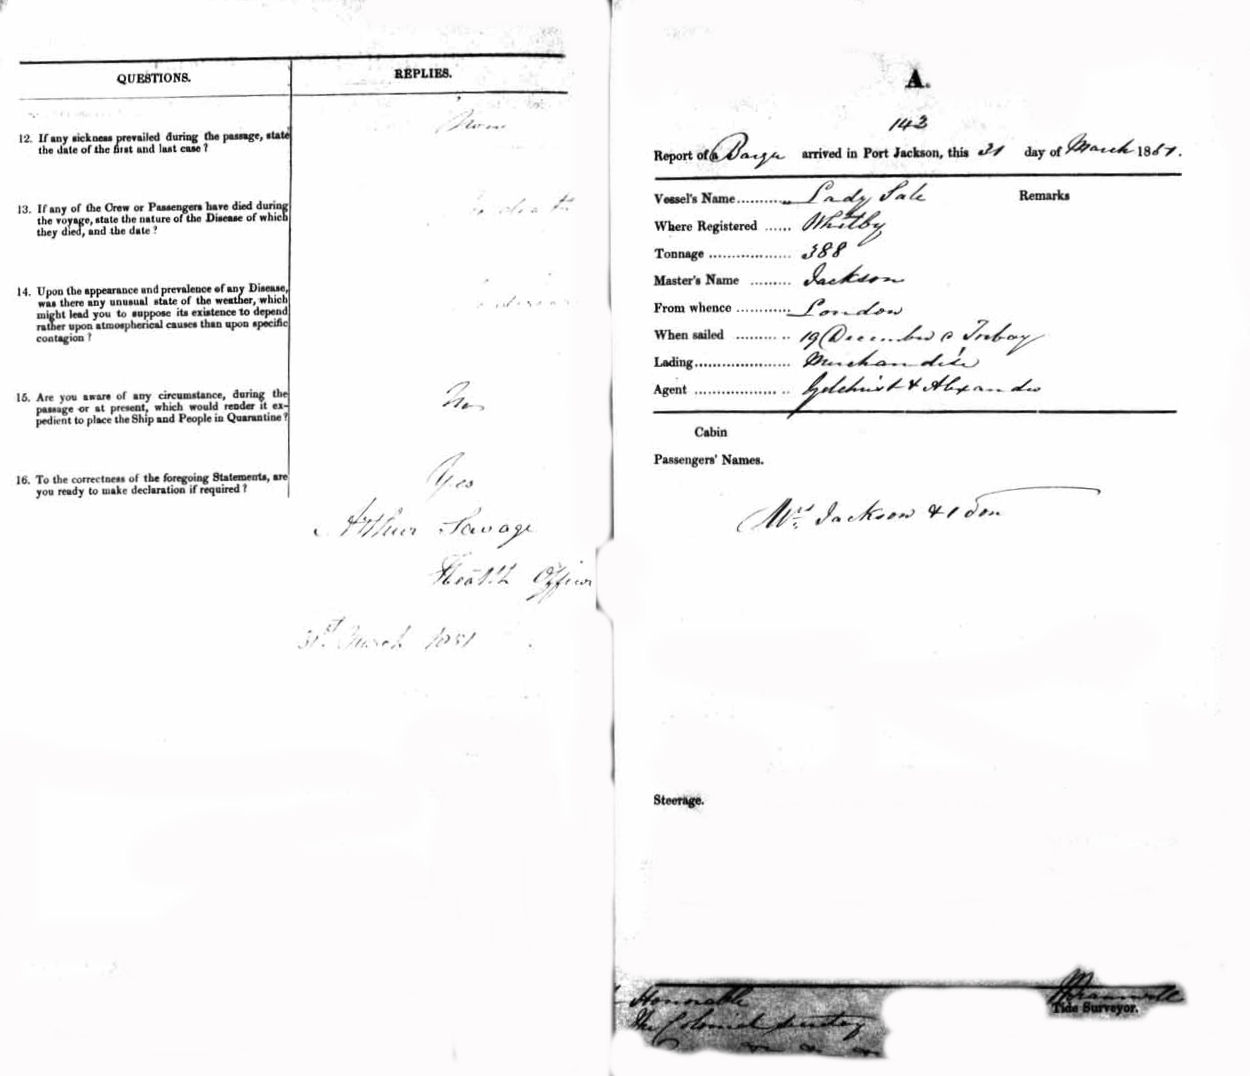 QUESTIONS. REPLIES.
12. If any sickness prevailed during the passage, state
the date of the first and last case ?
None
13. If any of the Crew or Passengers have died during
the voyage, state the nature of the Disease of which
they died, and the date ?
No death
14. Upon the appearance and prevalence of any Disease,
was there any unusual state of the weather, which
might lead you to suppose its existence to depend
rather upon atmospherical causes than upon specific
contagion ?
15. Are you aware of any circumstance, during the
passage or at present, which would render it ex-
pedient to place the Ship and People in Quarantine ?
No
16. To the correctness of the foregoing Statements, are
you ready to make declaration if required ?
Yes
Arthur Savage
Health Officer
31st March 1851
A.
142
Report of a Barque arrived in Port Jackson, this 31 day of March 1851.
Vessel's Name........... Lady Sale Remarks
Where Registered ...... Whitby
Tonnage .................. 388
Master's Name ......... Jackson
From whence ............ London
When sailed ............ 19 December Torbay
Lading..................... Merchandise
Agent ..................... Gilchrist & Alexander
Cabin
Passengers' Names.
Mrs Jackson & 1 Son
Steerage.
Honorable
The Colonial Secretary
Tide Surveyor.